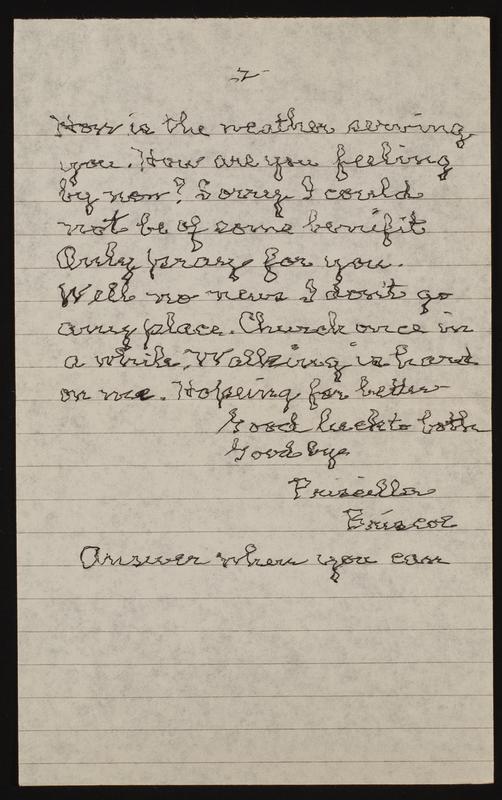 -2-
How is the weather serving
you. How are you feeling
by now? Sorry I could
not be of some benifit
Only pray for you.
Well no news I don't go
any place. Church once in
a while. Walking is hard
on me. Hopeing for better
Good luck to both
Good bye
Priscilla
Briscoe
Answer when you can